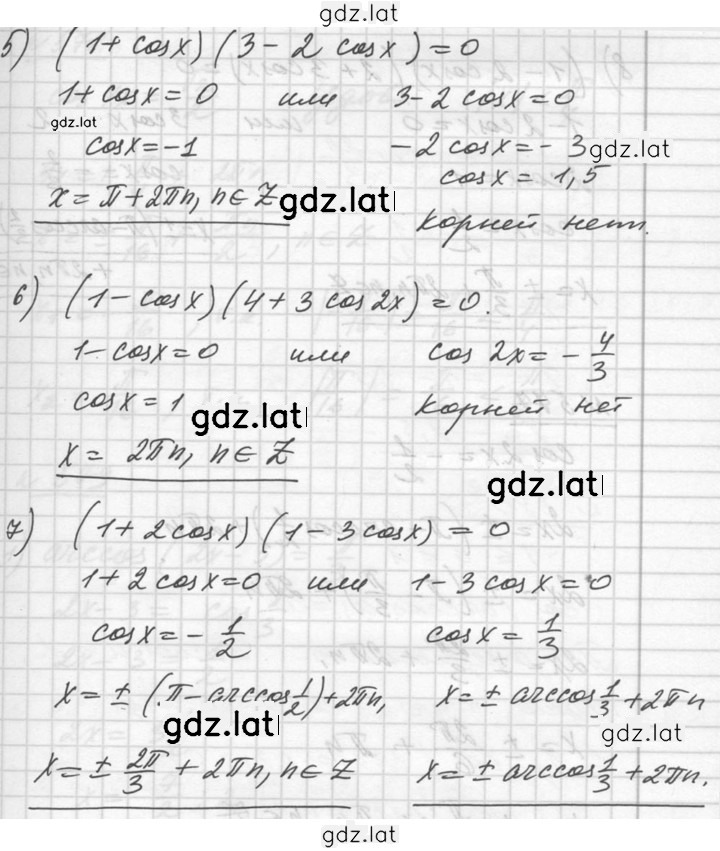 gdz.lat
5) (1 + cos x) (3 - 2 cos x) = 0
1 + cos x = 0 или 3 - 2 cos x = 0
gdz.lat
cos x = -1 -2 cos x = -3 gdz.lat
x = π + 2πn, n ∈ Z gdz.lat cos x = 1,5
корней нет.
6) (1 - cos x) (4 + 3 cos 2x) = 0.
1 - cos x = 0 или cos 2x = - 4/3
cos x = 1 gdz.lat корней нет
x = 2πn, n ∈ Z gdz.lat
7) (1 + 2 cos x) (1 - 3 cos x) = 0
1 + 2 cos x = 0 или 1 - 3 cos x = 0
cos x = - 1/2 cos x = 1/3
x = ± (π - arccos 1/2) + 2πn, x = ± arccos 1/3 + 2πn
gdz.lat gdz.lat
x = ± 2π/3 + 2πn, n ∈ Z x = ± arccos 1/3 + 2πn.
gdz.lat